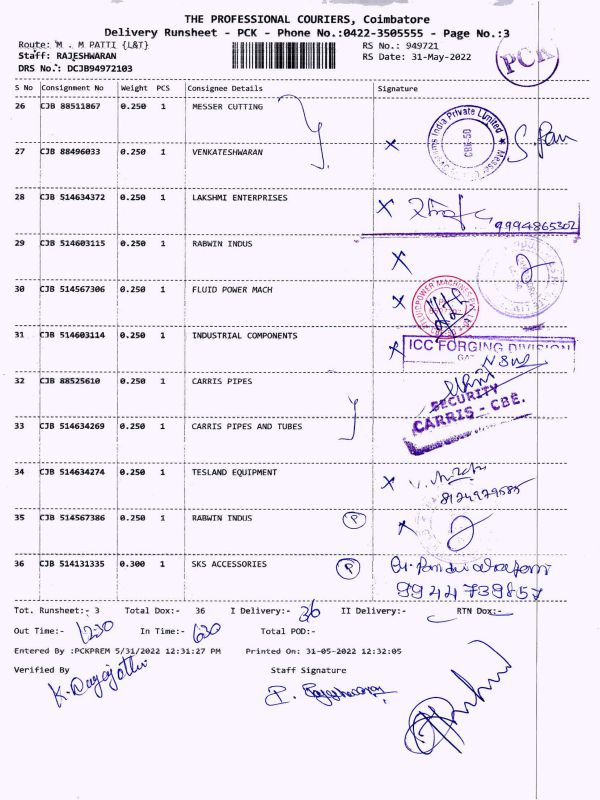 THE PROFESSIONAL COURIERS, Coimbatore
Delivery Runsheet - PCK - Phone No.:0422-3505555 - Page No.:3
Route: M . M PATTI {L&T} RS No.: 949721
Staff: RAJESHWARAN RS Date: 31-May-2022
DRS No.: DCJB94972103
PCK
S No Consignment No Weight PCS Consignee Details Signature
26 CJB 88511867 0.250 1 MESSER CUTTING
27 CJB 88496033 0.250 1 VENKATESHWARAN
28 CJB 514634372 0.250 1 LAKSHMI ENTERPRISES
9994865302
29 CJB 514603115 0.250 1 RABWIN INDUS
30 CJB 514567306 0.250 1 FLUID POWER MACH
31 CJB 514603114 0.250 1 INDUSTRIAL COMPONENTS
ICC FORGING DIVISION
32 CJB 88525610 0.250 1 CARRIS PIPES
SECURITY
CARRIS - CBE.
33 CJB 514634269 0.250 1 CARRIS PIPES AND TUBES
34 CJB 514634274 0.250 1 TESLAND EQUIPMENT
8124979585
35 CJB 514567386 0.250 1 RABWIN INDUS P
36 CJB 514131335 0.300 1 SKS ACCESSORIES P
9944739857
Tot. Runsheet:- 3 Total Dox:- 36 I Delivery:- 36 II Delivery:- RTN Dox:-
Out Time:- 1230 In Time:- 630 Total POD:-
Entered By :PCKPREM 5/31/2022 12:31:27 PM Printed On: 31-05-2022 12:32:05
Verified By Staff Signature